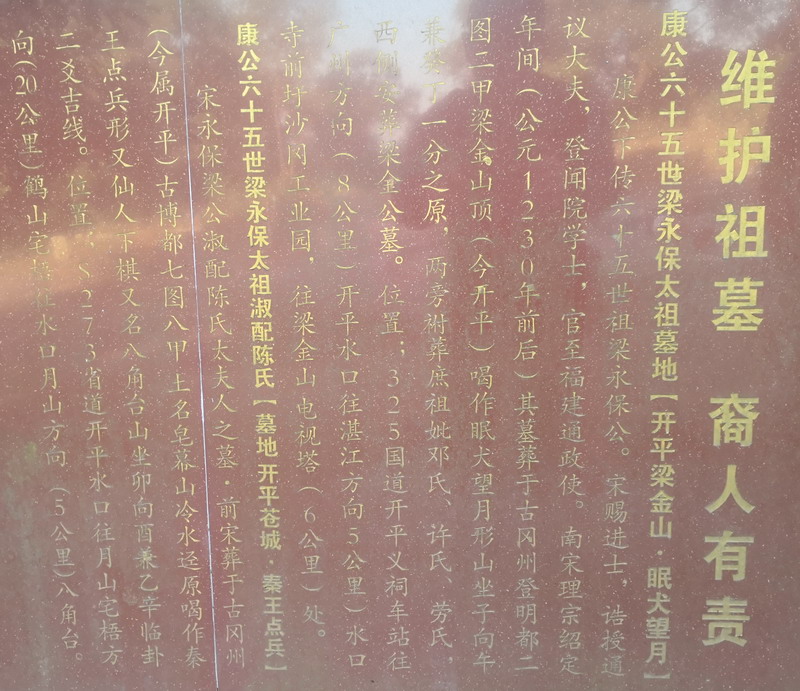 维护祖墓 裔人有责
康公六十五世梁永保太祖墓地【开平梁金山·眠犬望月】
康公下传六十五世祖梁永保公。宋赐进士,诰授通
议大夫,登闻院学士,官至福建通政使。南宋理宗绍定
年间(公元1230年前后)其墓葬于古冈州登明都二
图二甲梁金山顶(今开平)喝作眠犬望月形山坐子向午
兼癸丁一分之原,两旁祔葬庶祖妣邓氏、许氏、劳氏,
西侧安葬梁金公墓。位置;325国道开平义祠车站往
广州方向(8公里)开平水口往湛江方向5公里)水口
寺前圩沙冈工业园,往梁金山电视塔(6公里)处。
康公六十五世梁永保太祖淑配陈氏【墓地开平苍城·秦王点兵】
宋永保梁公淑配陈氏太夫人之墓·前宋葬于古冈州
(今属开平)古博都七图八甲土名皂幕山冷水迳原喝作秦
王点兵形又仙人下棋又名八角台山坐卯向酉兼乙辛临卦
二爻吉线。位置:S273省道开平水口往月山宅梧方
向(20公里)鹤山宅梧往水口月山方向(5公里)八角台。